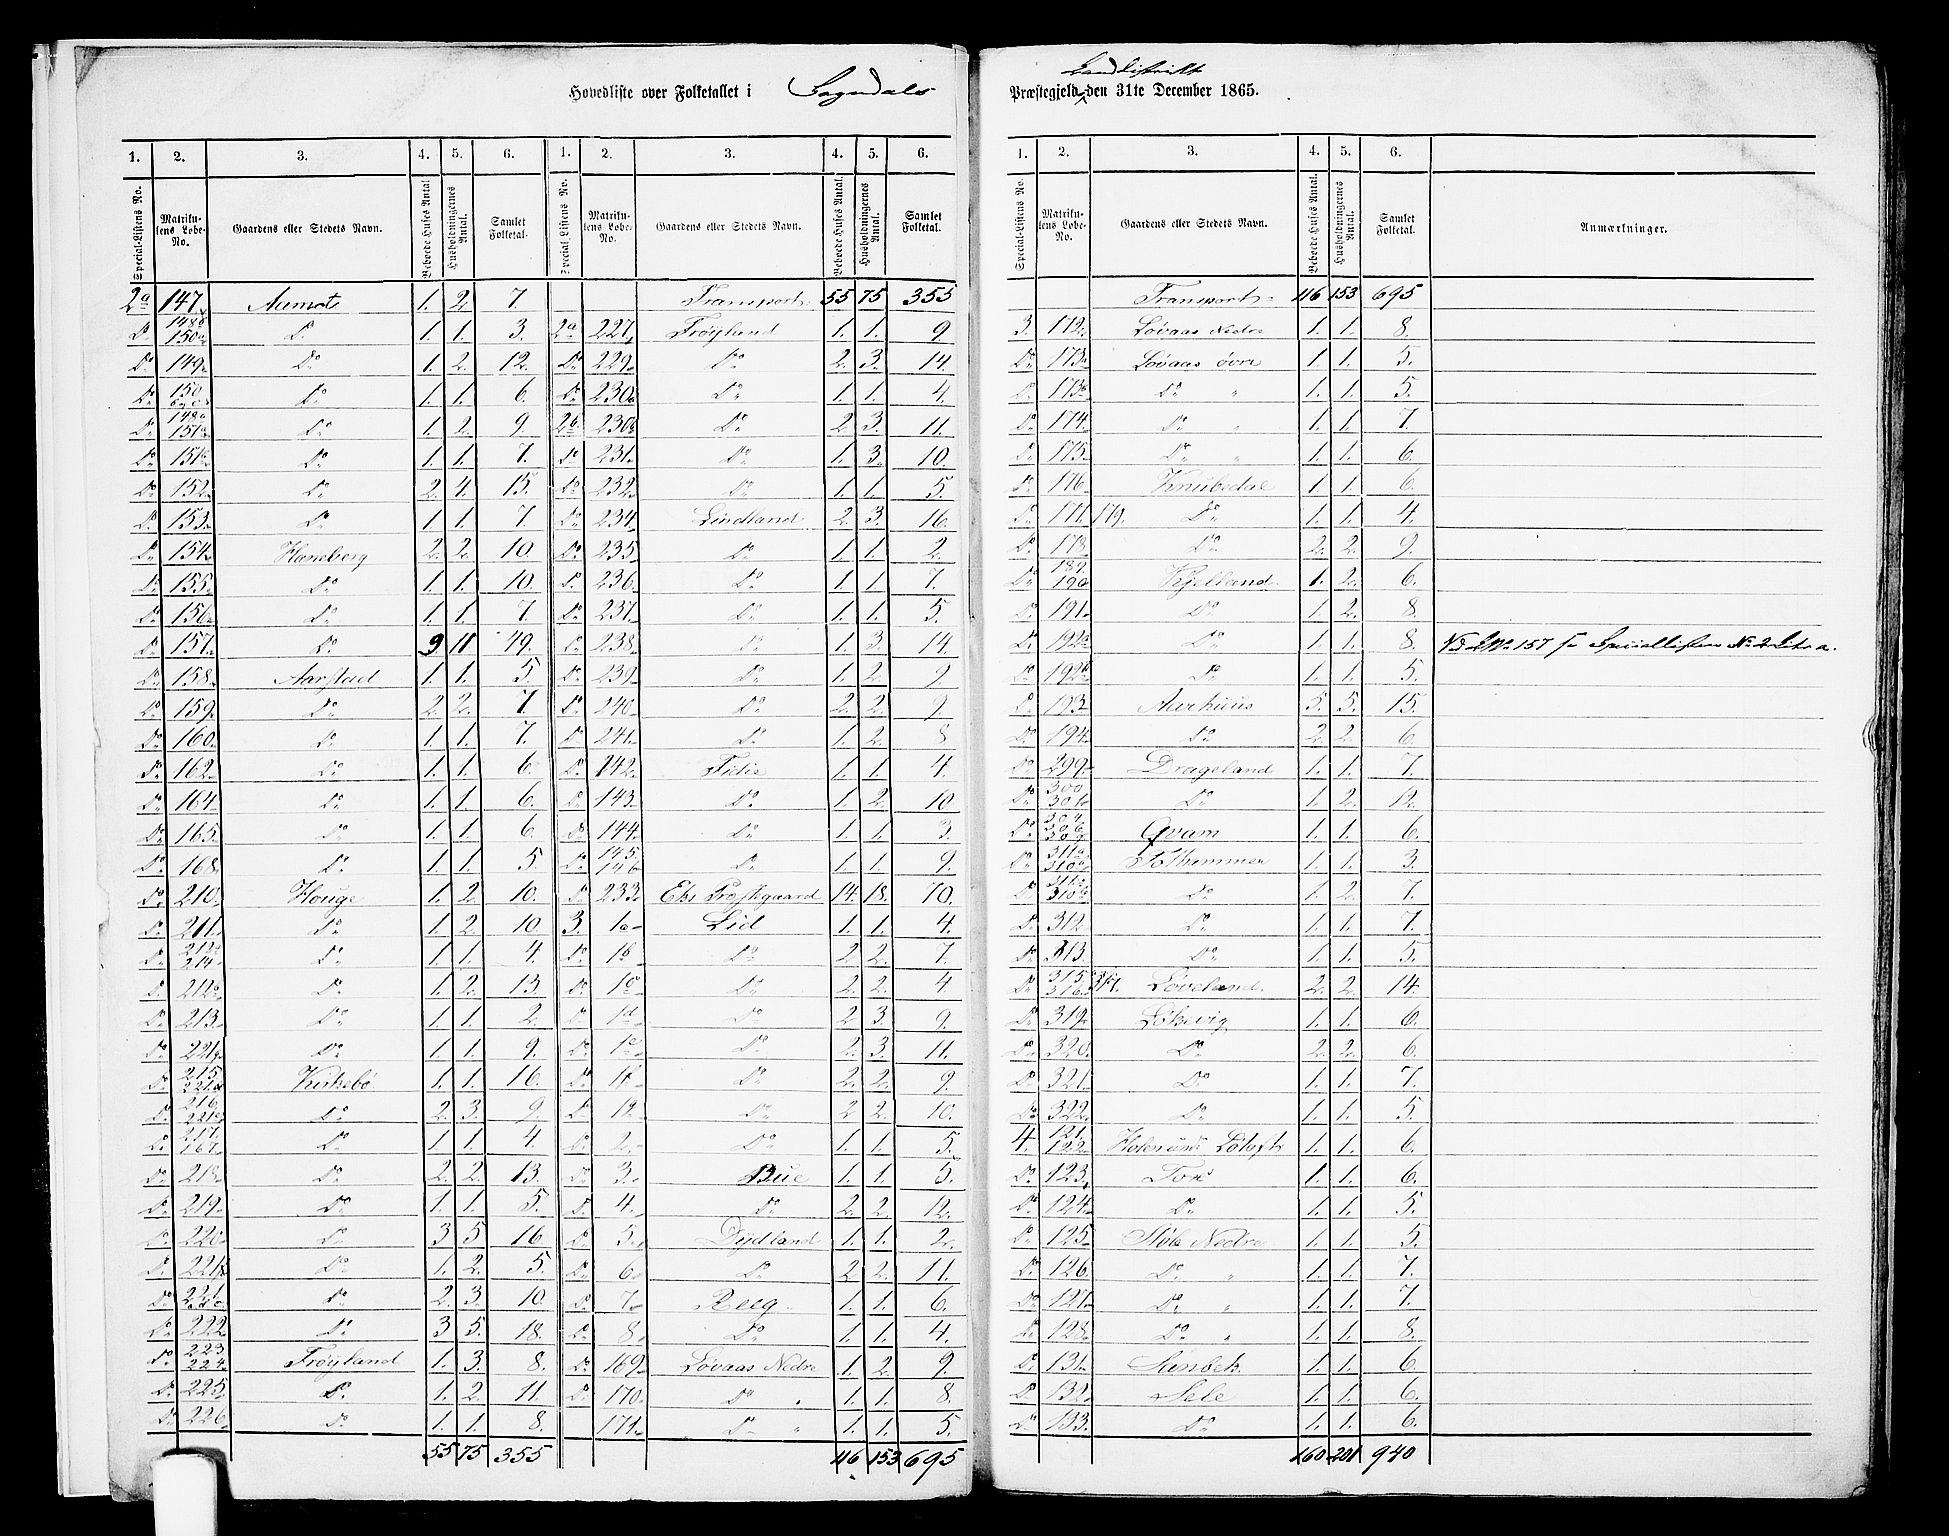 Hovedliste over Folketallet i Sogndals
Landdistrikt
Præstegjeld den 31te December 1865.
1. 2. 3. 4. 5. 6. 1. 2. 3. 4. 5. 6.
Special-Listens No. Matrikulens Løbe-No. Gaardens eller Stedets Navn. Beboede Huses Antal Husholdningernes Antal. Samlet Folketal. Special Listens No. Matrikulens Løbe-No. Gaardens eller Stedets Navn. Beboede Huses Antal. Husholdningernes Antal. Samlet Folketal.
2a 147. Aamot 1. 2. 7. Transport 55 75 355
Do 150a Do 1. 1. 3. 2a 227. Frøyland 1. 1. 9
Do 149. Do 1. 2. 12. Do 229. Do 2. 3. 14.
Do 150 Do 1. 1. 6. Do 230a Do 1. 1. 4.
Do 148a 151a Do 1. 2. 9. 2b. 230b Do 2. 3. 11.
Do 151 Do 1. 1. 7. Do 231. Do 1. 3. 10.
Do 152. Do 2. 4. 15. Do 232. Do 1. 1. 5.
Do 153. Do 1. 1. 7 Do 234. Lindland 2. 3. 16.
Do 154. Haneberg 2. 2. 10. Do 235. Do 1. 1. 2.
Do 155. Do 1. 1. 10. Do 236. Do 1. 1. 7.
Do 156. Do 1. 1. 7. Do 237. Do 1. 1. 5.
Do 157. Do 9 11 49. Do 238. Do 1. 3. 14.
Do 158. Aarstad 1. 1. 5. Do 239. Do 1. 2. 9.
Do 159. Do 2. 2. 7. Do 240. Do 2. 2. 9.
Do 160. Do 1. 1. 7. Do 241. Do 1. 2. 8
Do 162. Do 1. 1. 6. Do 142. Fidie 1. 1. 4.
Do 164. Do 1. 1. 6. Do 143. Do 1. 2. 10
Do 165. Do 1. 1. 6. Do 144. Do 1. 1. 3.
Do 168. Do 1. 1. 5. Do 145. 146 Do 1. 1. 9.
Do 210. Houge 1. 2. 10. Do 233. Præstegaard 14. 18. 70.
Do 211. Do 1. 2. 10. 3. 1a Lid 1. 1. 4.
Do 212 214. Do 1. 1. 4. Do 1b Do 2 2. 7.
Do 212 Do 1. 2. 13. Do 1c Do 2. 2. 4
Do 213. Do 1. 1. 2. Do 1d Do 2 3. 9.
Do 221 Do 1. 1. 9. Do 1e Do 2. 3. 11.
Do 215. 221 Kirkebø 1. 1. 16. Do 1f Do 2. 2. 9.
Do 216. 221 Do 2. 3. 9. Do 1g Do 2 2. 10.
Do 217. 167. Do 1. 1. 4. Do 2. Do 1. 1. 5.
Do 218. Do 2. 2. 13. Do 3. Bue 1. 1. 5.
Do 219. Do 1. 1. 5. Do 4. Do 2. 2. 12.
Do 220. Do 3 5 16. Do 5. Dydland 1. 1. 2.
Do 221 Do 1. 2. 5. Do 6. Do 2 2. 11.
Do 221 Do 2. 3. 10. Do 7. Reeg 1. 1. 6.
Do 222 Do 3 5. 18. Do 8. Do 1. 1. 4.
Do 223. 224. Frøyland 1. 3. 8. Do 169. Løvaas Nedre 1. 2. 9.
Do 225. Do 1. 2. 11. Do 170. Do „ 1. 1. 8.
Do 226. Do 1. 1. 8. 171. Do „ 1. 1. 5.
55 75 355 116 153 695
1. 2. 3. 4. 5. 6.
Special-Listens No. Matrikulens Løbe-No. Gaardens eller Stedets Navn. Beboede Huses Antal. Husholdningernes Antal. Samlet Folketal. Anmærkninger.
Transport 116 153 695
3. 172. Løvaas Nedre 1. 1. 8.
Do 173a Løvaas øvre 1. 1. 5.
Do 173b Do „ 1. 1. 5.
Do 174. Do „ 1. 1. 7.
Do 175. Do „ 1. 1. 6.
Do 176. Knubedal 1. 1. 6
Do 177. 179. Do 1. 1. 4.
Do 178 Do 2. 2. 9.
Do 189. 190 Kjelland. 1. 2. 6.
Do 191. Do 1. 2. 8.
Do 192a Do 1. 1. 8. Specialisten No 2 Litr a.
Do 192b Do 1. 1. 5.
Do 193 Aarhuus 5. 5. 15.
Do 194. Do 2. 2. 6
Do 299. Drageland 1. 1. 7.
Do 300 301. Do 1. 2. 12.
Do 304. 306 309 Qvam 1. 1. 6.
Do 311a 310a 1. 1. 3.
Do 311 310b Do 1. 2. 7.
Do 312. Do 1. 1. 7.
Do 313. Do 1. 1. 5.
Do 315. 316. 317. Løveland. 2. 2. 14.
Do 319. Løkevig 1. 1. 6.
Do 320. Do 2. 2. 6.
Do 321. Do 1. 1. 7.
Do 322. Do 1. 1. 5.
4. 121. 122. 1. 1. 6.
Do 123. Tors 1. 1. 6.
Do 124. Do 1. 1. 5.
Do 125. Støle Nedre 1. 1. 5.
Do 126. Do „ 1. 1. 7.
Do 127. Do „ 1. 1. 7.
Do 128. Do „ 1. 1. 8.
Do 131. 1. 1. 6.
Do 132. Sele 1. 1. 6.
Do 133. Do 1. 1. 6.
160 201 940